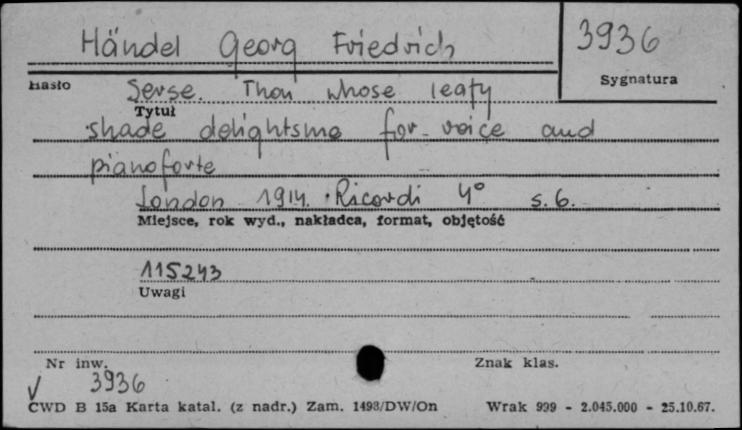 Händel Georg Friedrich
3936
Hasło
Sygnatura
Serse. Thou whose leafy
Tytuł
shade delightsme for voice and
pianoforte
London 1914. Ricordi 4° s. 6.
Miejsce, rok wyd., nakładca, format, objętość
115243
Uwagi
Nr inw.
Znak klas.
3936
CWD B 15a Karta katal. (z nadr.) Zam. 1493/DW/On Wrak 999 - 2.045.000 - 25.10.67.